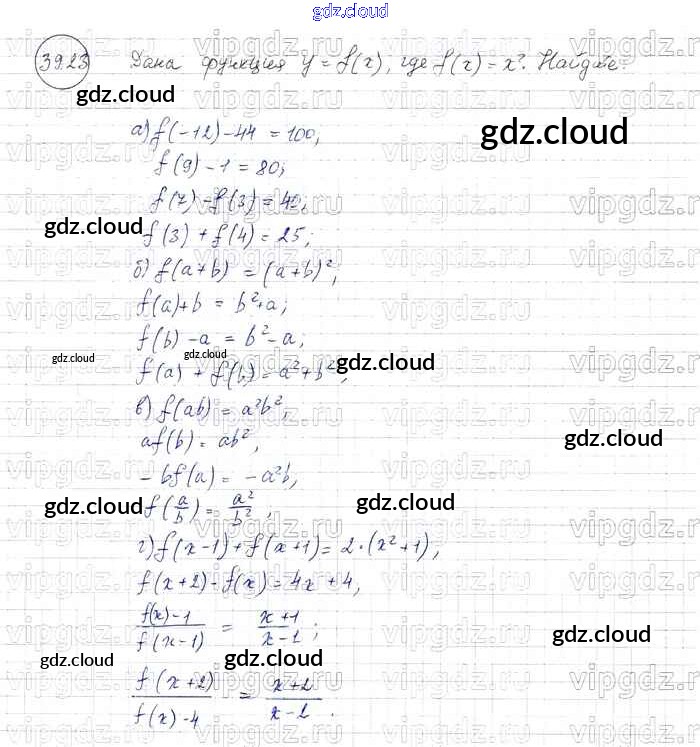 gdz.cloud
39.23 Дана функция y = f(x), где f(x) = x². Найдите:
gdz.cloud
а) f(-12) - 44 = 100,
gdz.cloud
f(9) - 1 = 80;
f(7) - f(3) = 40,
gdz.cloud
f(3) + f(4) = 25;
б) f(a+b) = (a+b)²,
f(a)+b = b²+a;
f(b) - a = b² - a;
gdz.cloud gdz.cloud gdz.cloud
f(a) + f(b) = a² + b²,
в) f(ab) = a²b²,
gdz.cloud
af(b) = ab²,
- bf(a) = - a²b,
gdz.cloud gdz.cloud
f(a/b) = a²/b²,
г) f(x-1) + f(x+1) = 2·(x²+1),
f(x+2) - f(x) = 4x + 4,
f(x)-1 / f(x-1) = x+1 / x-1;
gdz.cloud
gdz.cloud gdz.cloud
f(x+2) / f(x)-4 = x+2 / x-2.
gdz.cloud